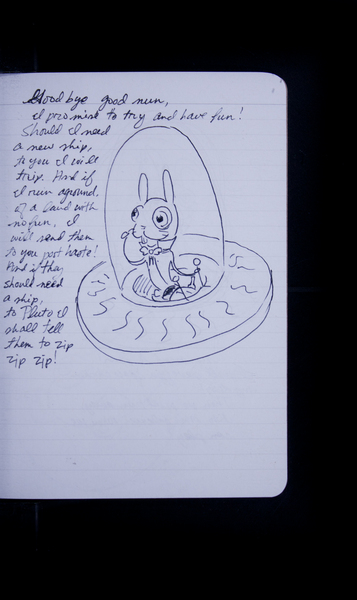 Goodbye good nun,
I promise to try and have fun!
Should I need
a new ship,
to you I will
trip. And if
I run aground,
of a land with
no fun, I
will send them
to you post haste!
And if they
should need
a ship,
to Pluto I
shall tell
them to zip
zip zip!